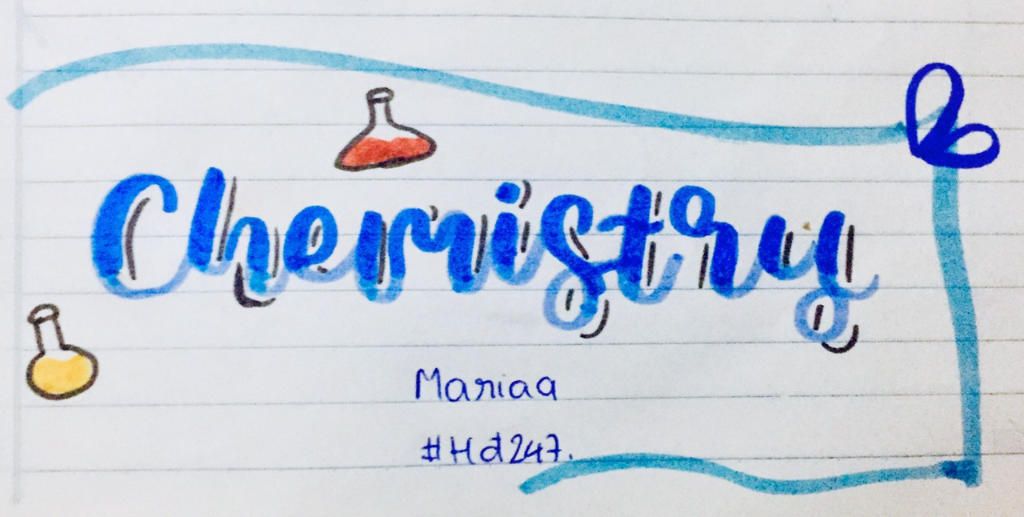 Chemistry
Mariaa
#Hd247.